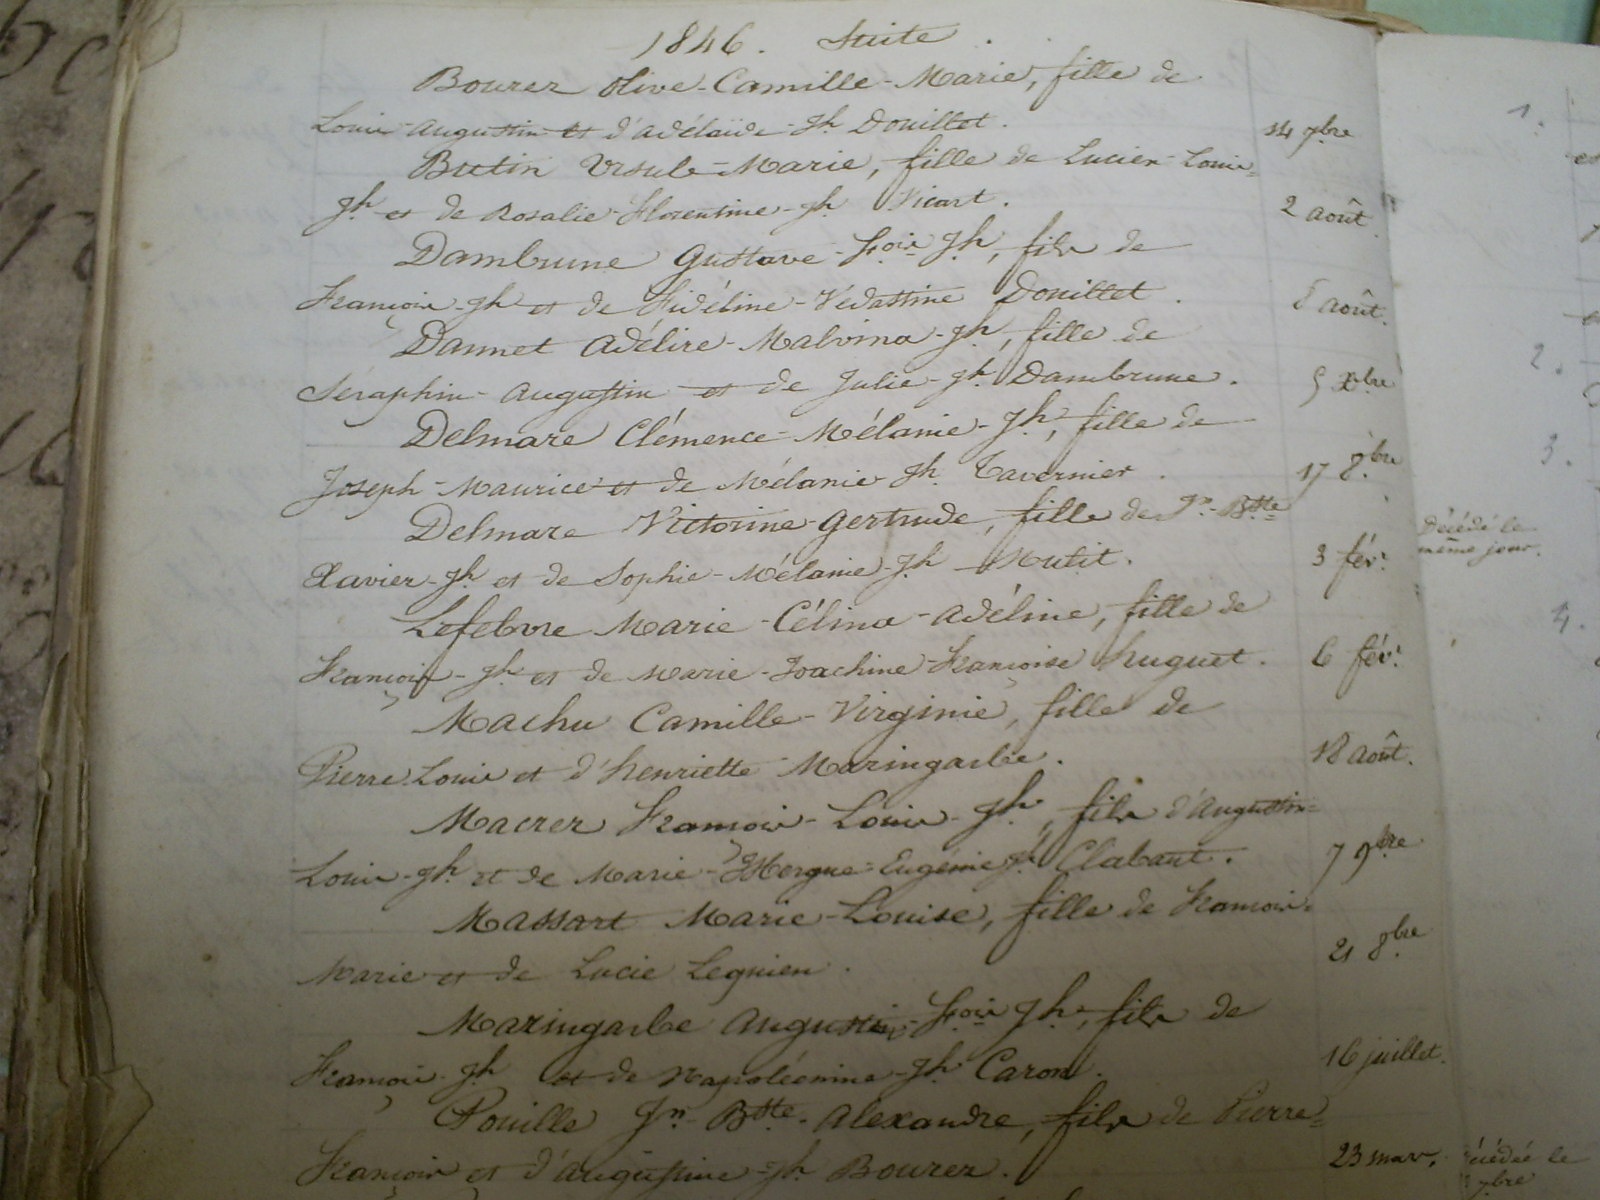 1846. Suite.
Bourez Olive-Camille-Marie, fille de
Louis-Augustin et d'Adélaïde-Jh Douillet.
14 7bre
Butin Ursule-Marie, fille de Lucien-Louis-
Jh et de Rosalie-Florentine-Jh Vicart.
2 août.
Dambrune Gustave-Fois-Jh, fils de
François-Jh et de Fidéline-Védastine Douillet.
août.
Dannet Adélire-Malvina-Jh, fille de
Séraphin-Augustin et de Julie-Jh Dambrune.
5 Xbre
Delmare Clémence-Mélanie-Jh, fille de
Joseph-Maurice et de Mélanie-Jh Tavernier.
17 8bre
Delmare Victorine-Gertrude, fille de Jn-Btte
Xavier-Jh et de Sophie-Mélanie-Jh
3 fév.
Décédé le
même jour.
Lefebvre Marie-Célina-Adéline, fille de
François-Jh et de Marie-Joachine-Françoise huguet.
6 fév.
Machu Camille-Virginie, fille de
Pierre Louis et d'henriette Maringarbe.
18 août.
Macrez François-Louis-Jh, fils d'Augustin-
Louis-Jh et de Marie- Eugénie Jh Clabaut.
7 9bre
Massart Marie-Louise, fille de François-
Marie et de Lucie Legnien.
21 8bre
Maringarbe Augustin-Fois Jh, fils de
François-Jh et de Napoléonine-Jh Caron.
16 juillet.
Pouille Jn-Btte-Alexandre, fils de Pierre-
François et d'Augustine-Jh Bourez.
23 mars.
le
7bre
1.
2.
3.
4.